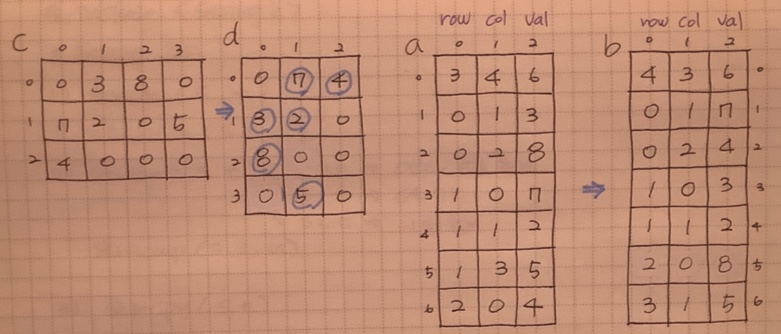 c 0 1 2 3
0 0 3 8 0
1 7 2 0 5
2 4 0 0 0
⇒
d 0 1 2
0 0 7 4
1 3 2 0
2 8 0 0
3 0 5 0
row col val
a 0 1 2
0 3 4 6
1 0 1 3
2 0 2 8
3 1 0 7
4 1 1 2
5 1 3 5
6 2 0 4
⇒
row col val
b 0 1 2
4 3 6 0
0 1 7 1
0 2 4 2
1 0 3 3
1 1 2 4
2 0 8 5
3 1 5 6